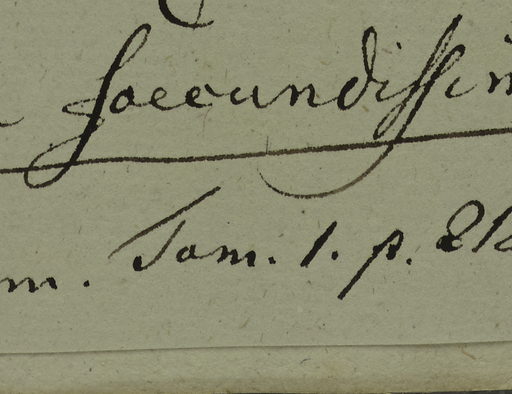 foecundissim
m. Tom. 1. p. 212